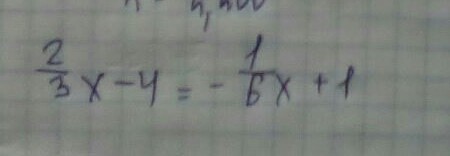 2/3 x - 4 = - 1/6 x + 1